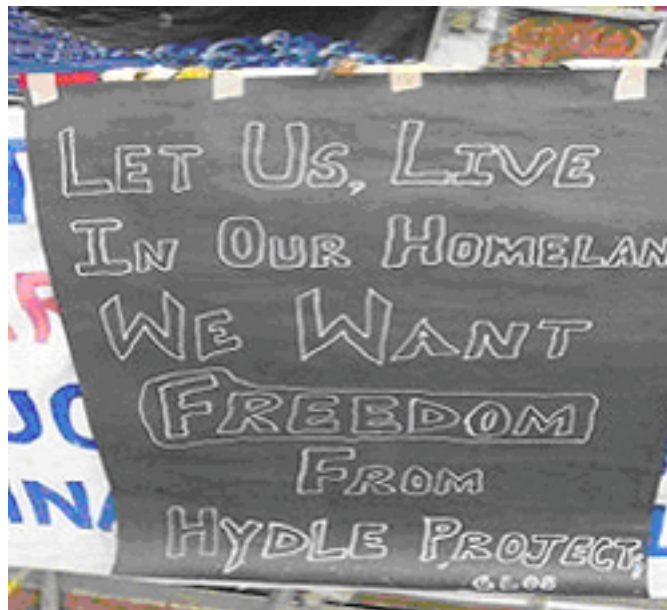 LET US, LIVE
IN OUR HOMELAN
WE WANT
FREEDOM
FROM
HYDLE PROJECT,